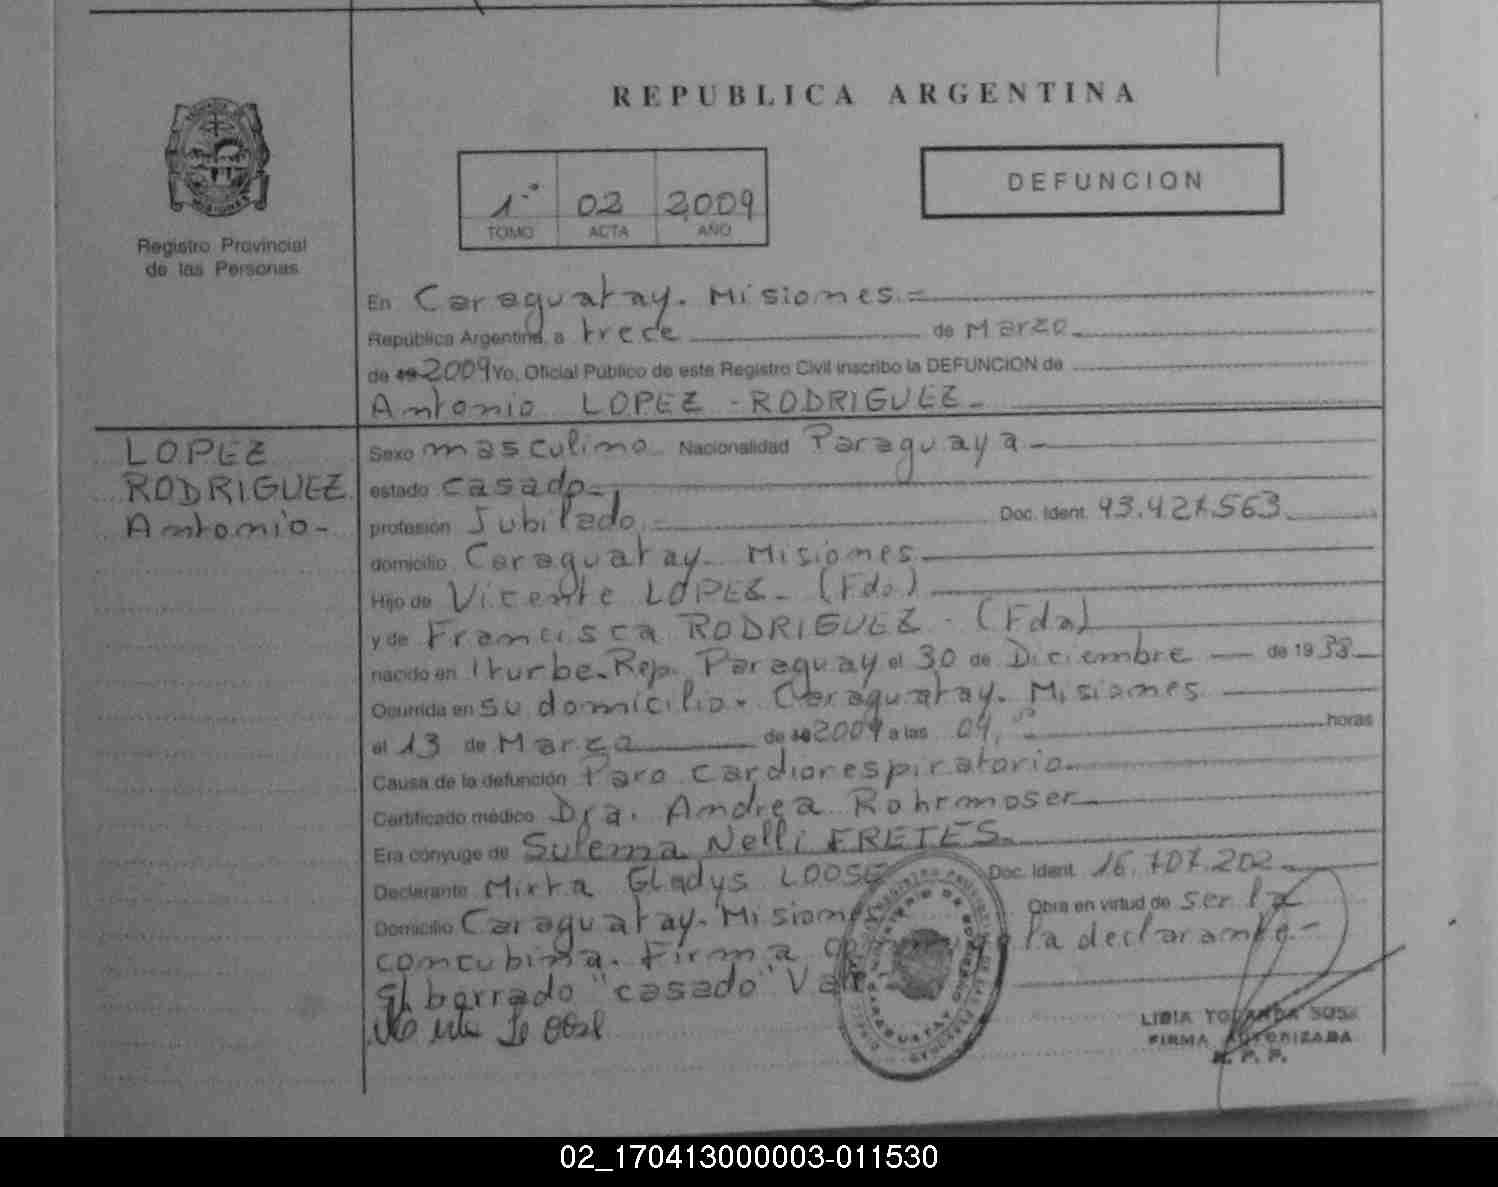 REPUBLICA ARGENTINA
1º 02 2009
TOMO ACTA AÑO
DEFUNCION
Registro Provincial
de las Personas
En Caraguatay. Misiones.=
República Argentina, a trece de Marzo
de 19 2009 Yo, Oficial Público de este Registro Civil inscribo la DEFUNCION de
Antonio LOPEZ - RODRIGUEZ.
LOPEZ
RODRIGUEZ
Antonio-
Sexo masculino Nacionalidad Paraguaya
estado casado.
profesión Jubilado. Doc. Ident. 93.427.563
domicilio Caraguatay. Misiones
Hijo de Vicente LOPEZ. (Fdo)
y de Francisca RODRIGUEZ. (Fda)
nacido en Iturbe. Rep. Paraguay el 30 de Diciembre de 1938
Ocurrida en su domicilio. Caraguatay. Misiones
el 13 de Marzo de 19 2009 a las 04, horas
Causa de la defunción Paro cardiorespiratorio
Certificado médico Dra. Andrea Rohrmoser
Era conyuge de Sulema Nelli FRETES.
Declarante Mirta Gladys LOOSE Doc. Ident. 16.707.202
Domicilio Caraguatay. Misiones Obra en virtud de ser la
concubina. Firma la declarante.-
S/ borrado "casado" Vale
LIDIA YOLANDA SOSA
FIRMA AUTORIZADA
R. P. P.
02_170413000003-011530